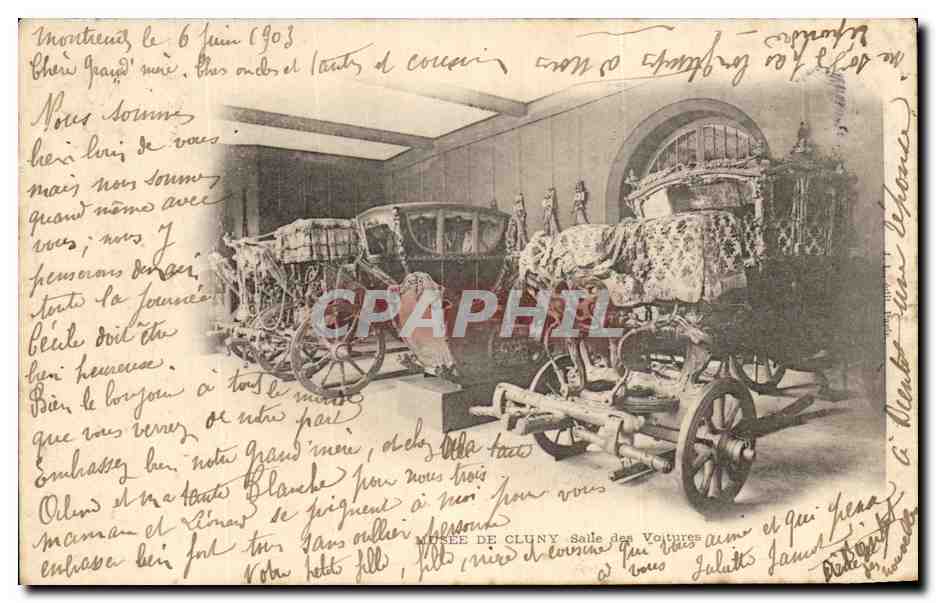 Montreuil le 6 Juin 1903
Chère Grand'mère. Chers oncles et tantes et cousin
Nous sommes
bien loin de vous
mais nous sommes
quand même avec
vous; nous y
penserons
toute la journée
Cécile doit être
bien heureuse.
Bien le bonjour à tout le monde
que vous verrez de notre part
Embrassez bien notre Grand'mère, et chez ma tante
et ma tante Blanche pour nous trois
maman et Léonard se joignent à moi pour vous
embrasser bien fort tous sans oublier personne
Votre petite fille, fille, nièce et cousine qui vous aime et qui pense
à vous Juliette
à Bientôt une réponse
ne
longtemps à nous
répondre
CPAPHIL
MUSÉE DE CLUNY Salle des Voitures